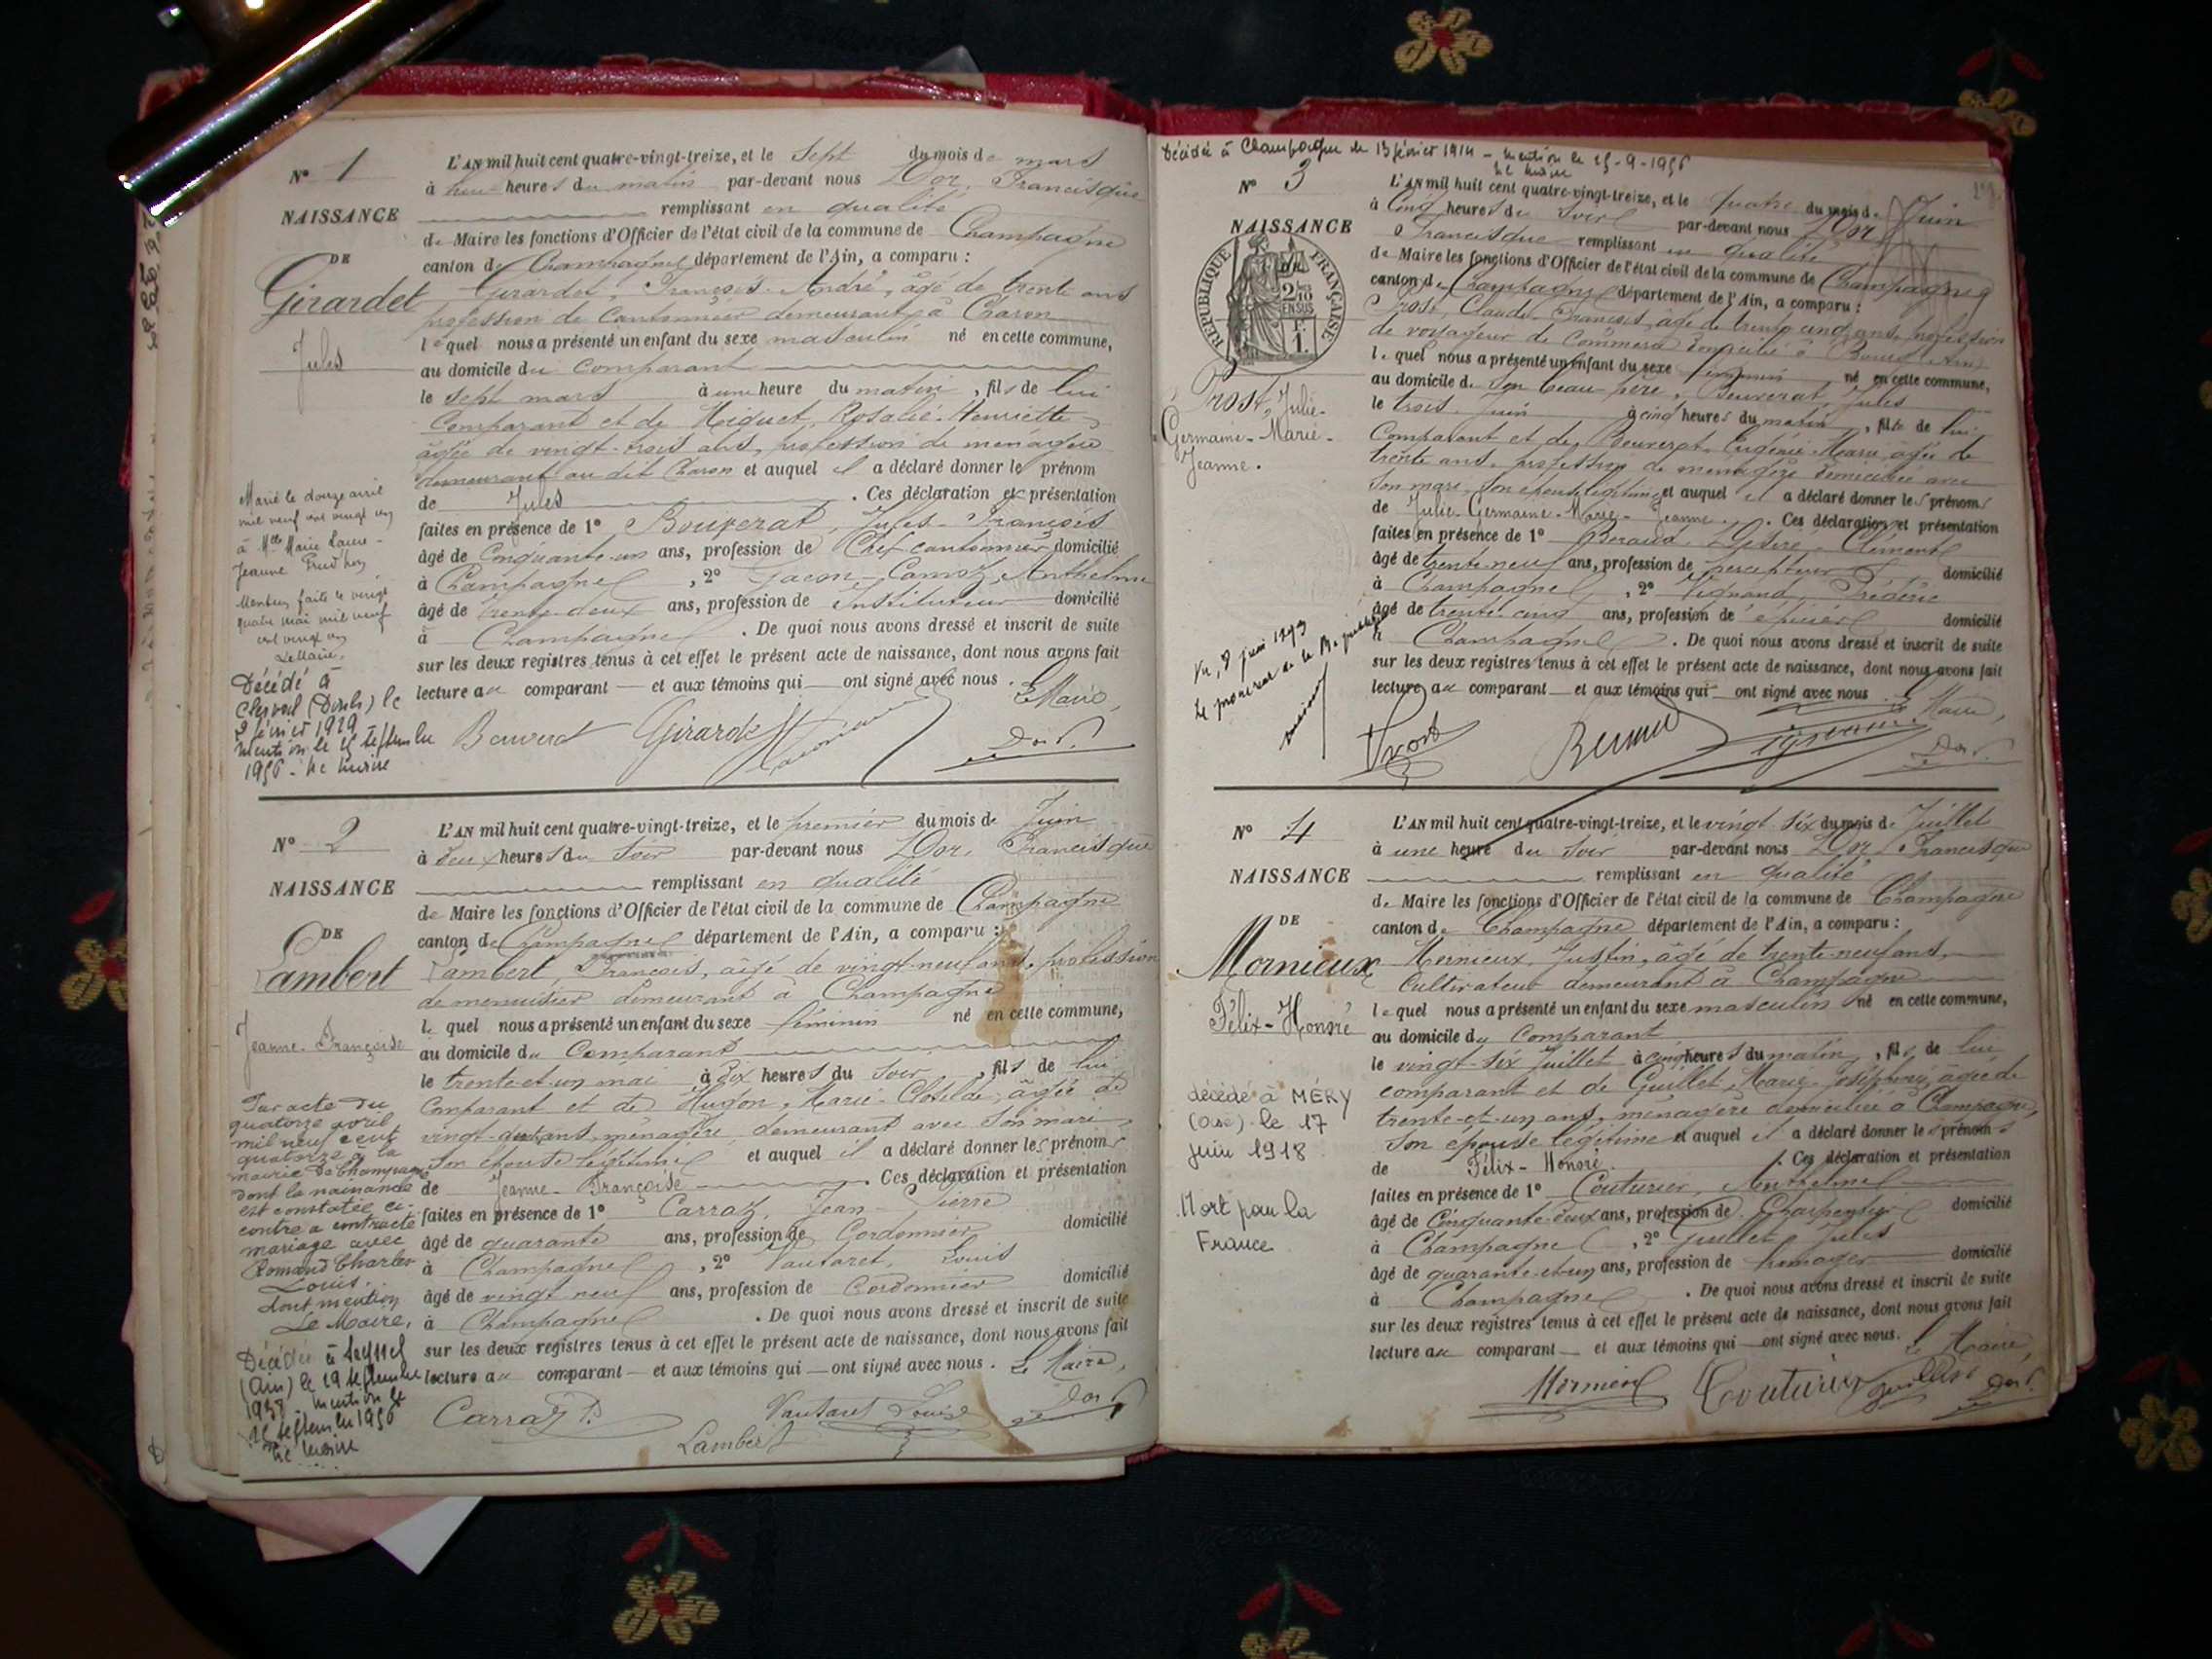 N° 1
NAISSANCE
DE
Girardet
Jules
L'AN mil huit cent quatre-vingt-treize, et le sept du mois de mars
à heures du matin par-devant nous Dor, Francisque
remplissant en qualité
de Maire les fonctions d'Officier de l'état civil de la commune de Champagne
canton de Champagne département de l'Ain, a comparu :
Girardet, François-André, âgé de trente ans
profession de Cantonnier demeurant à Charon
lequel nous a présenté un enfant du sexe masculin né en cette commune,
au domicile du Comparant
le sept mars à une heure du matin, fils de lui
Comparant et de Miguet, Rosalie-Henriette
âgée de vingt-trois ans, profession de ménagère
demeurant au dit Charon et auquel il a déclaré donner le prénom
de Jules. Ces déclaration et présentation
faites en présence de 1° Bouverat, Jules-François
âgé de Cinquante-un ans, profession de Chef cantonnier domicilié
à Champagne, 2° Jacon, Camoz, Anthelme
âgé de trente-deux ans, profession de Instituteur domicilié
à Champagne. De quoi nous avons dressé et inscrit de suite
sur les deux registres tenus à cet effet le présent acte de naissance, dont nous avons fait
lecture au comparant et aux témoins qui ont signé avec nous. Le Maire,
Bouverat Girardet Dor F.
Marié le douze avril
mil neuf cent vingt un
à Mlle Marie Laure-
Jeanne Prud'hon
Mention faite le vingt
quatre mai mil neuf
cent vingt un
Le Maire,
Décédé à
Clerval (Doubs) le
2 février 1929
mention le 15 septembre
1956 - Le Maire
N° 2
NAISSANCE
DE
Lambert
Jeanne-Françoise
L'AN mil huit cent quatre-vingt-treize, et le premier du mois de Juin
à deux heures du Soir par-devant nous Dor, Francisque
remplissant en qualité
de Maire les fonctions d'Officier de l'état civil de la commune de Champagne
canton de Champagne département de l'Ain, a comparu :
Lambert, François, âgé de vingt-neuf ans, profession
de menuisier demeurant à Champagne
lequel nous a présenté un enfant du sexe féminin né en cette commune,
au domicile du Comparant
le trente-et-un mai à dix heures du Soir, fils de lui
Comparant et de Hugon, Marie-Clotilde, âgée de
ménagère demeurant avec son mari
Son épouse légitime et auquel il a déclaré donner les prénoms
de Jeanne-Françoise Ces déclaration et présentation
faites en présence de 1° Carraz, Jean-Pierre
âgé de quarante ans, profession de Cordonnier domicilié
à Champagne, 2° Vautaret, Louis
âgé de vingt neuf ans, profession de Cordonnier domicilié
à Champagne. De quoi nous avons dressé et inscrit de suite
sur les deux registres tenus à cet effet le présent acte de naissance, dont nous avons fait
lecture au comparant et aux témoins qui ont signé avec nous. Le Maire,
Carraz P. Vautaret Louis Dor F.
Lambert
Par acte du
quatorze avril
mil neuf cent
quatorze à la
mairie de Champagne
dont la naissance
est constatée ci-
contre a contracté
mariage avec
Romand Charles
Louis.
dont mention
Le Maire,
Décédée à Seyssel
(Ain) le 19 septembre
mention le
15 septembre 1956
Le Maire
Décédée à Champagne le 13 février 1914 - mention le 15-9-1956
Le Maire
N° 3
NAISSANCE
REPUBLIQUE FRANÇAISE
2/10 EN SUS
Prost, Julie-
Germaine-Marie-
Jeanne.
L'AN mil huit cent quatre-vingt-treize, et le quatre du mois de Juin
à Cinq heures du Soir par-devant nous Dor
Francisque remplissant en qualité
de Maire les fonctions d'Officier de l'état civil de la commune de Champagne
canton de Champagne département de l'Ain, a comparu :
Prost, Claude-François, âgé de trente cinq ans, profession
de voyageur de Commerce domicilié à Bourg (Ain)
lequel nous a présenté un enfant du sexe féminin né en cette commune,
au domicile de son beau-père, Bouverat, Jules
le trois Juin à cinq heures du matin, fille de lui
Comparant et de Bouverat, Eugénie-Marie, âgée de
trente ans, profession de ménagère domiciliée avec
Son mari, son épouse légitime et auquel il a déclaré donner les prénoms
de Julie-Germaine-Marie-Jeanne. Ces déclaration et présentation
faites en présence de 1° Beraud, Désiré, Clément
âgé de trente-neuf ans, profession de percepteur domicilié
à Champagne, 2° Vignand, Frédéric
âgé de trente-cinq ans, profession de épicier domicilié
à Champagne. De quoi nous avons dressé et inscrit de suite
sur les deux registres tenus à cet effet le présent acte de naissance, dont nous avons fait
lecture au comparant et aux témoins qui ont signé avec nous. Le Maire,
Prost Dor F.
Vu, 8 juin 1893
Le procureur de la République
N° 4
NAISSANCE
DE
Mornieux
Félix-Honoré
L'AN mil huit cent quatre-vingt-treize, et le vingt six du mois de Juillet
à une heure du Soir par-devant nous Dor, Francisque
remplissant en qualité
de Maire les fonctions d'Officier de l'état civil de la commune de Champagne
canton de Champagne département de l'Ain, a comparu :
Mornieux, Justin, âgé de trente-neuf ans,
Cultivateur demeurant à Champagne
lequel nous a présenté un enfant du sexe masculin né en cette commune,
au domicile du Comparant
le vingt-six Juillet à cinq heures du matin, fils de lui
comparant et de Guillet, Marie-Joséphine, âgée de
trente-et-un ans, ménagère domiciliée à Champagne,
Son épouse légitime et auquel il a déclaré donner les prénoms
de Félix-Honoré. Ces déclaration et présentation
faites en présence de 1° Couturier, Anthelme
âgé de Cinquante-deux ans, profession de Charpentier domicilié
à Champagne, 2° Guillet, Jules
âgé de quarante-et-un ans, profession de domicilié
à Champagne. De quoi nous avons dressé et inscrit de suite
sur les deux registres tenus à cet effet le présent acte de naissance, dont nous avons fait
lecture au comparant et aux témoins qui ont signé avec nous. Le Maire,
Mornieux Couturier Guillet Dor F.
décédé à MÉRY
(Oise) le 17
juin 1918
Mort pour la
France